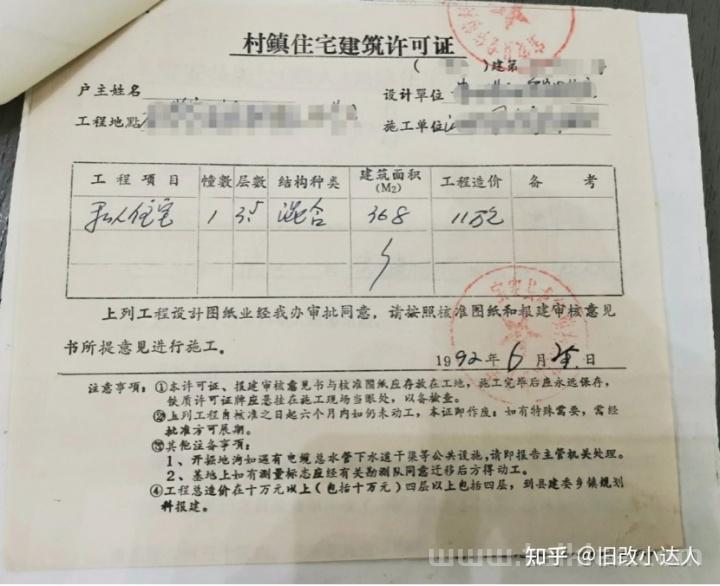 村鎮住宅建筑许可证
( )建第
户主姓名
设计單位
工程地點
施工单位
工程项目 幢數 层數 结构种类 建筑面积(M₂) 工程造价 备考
私人住宅 1 3.5 混合 368 11万元
上列工程设计图纸业经我办审批同意，请按照核准图纸和报建审核意见
书所提意见进行施工。
1992年6月 日
注意事项：①本许可证、报建审核意见书与核准图纸应存放在工地，施工完毕后应永远保存，
铁质许可证牌应悬挂在施工现场当眼处，以备检查。
②上列工程自核准之日起六个月内如仍未动工，本证即作废；如有特殊需要，需经
批准方可展期。
③其他注备事项：
1、开挖地沟如遇有电缆总水管下水道干渠等公共设施，请即报告主管机关处理。
2、基地上如有测量标志应经有关勘测队同意迁移后方得动工。
④工程总造价在十万元以上(包括十万元)四层以上包括四层，到县建委乡镇规划
科报建。
知乎 @旧改小达人